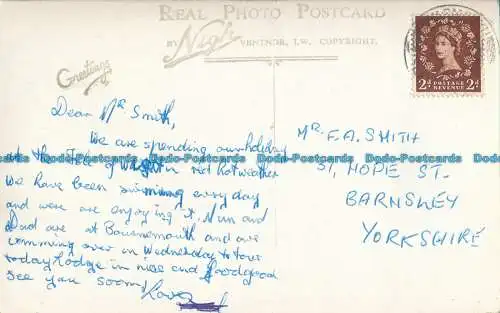 REAL PHOTO POSTCARD
BY Nigh VENTNOR, I.W. COPYRIGHT.
Greetings
POSTAGE REVENUE
2d 2d
Dear Mr Smith,
We are spending our holiday
at the Isle of Wight in red hot weather
We have been swimming every day
and were are enjoying it. Mum and
Dad are at Bournemouth and are
comming over on Wednesday to tour
today lodge in nice and food good
See you soon
Love
MR. F.A. SMITH
51, HOPE ST.
BARNSLEY
YORKSHIRE
Dado-Postcards Dado-Postcards Dado-Postcards Dado-Postcards